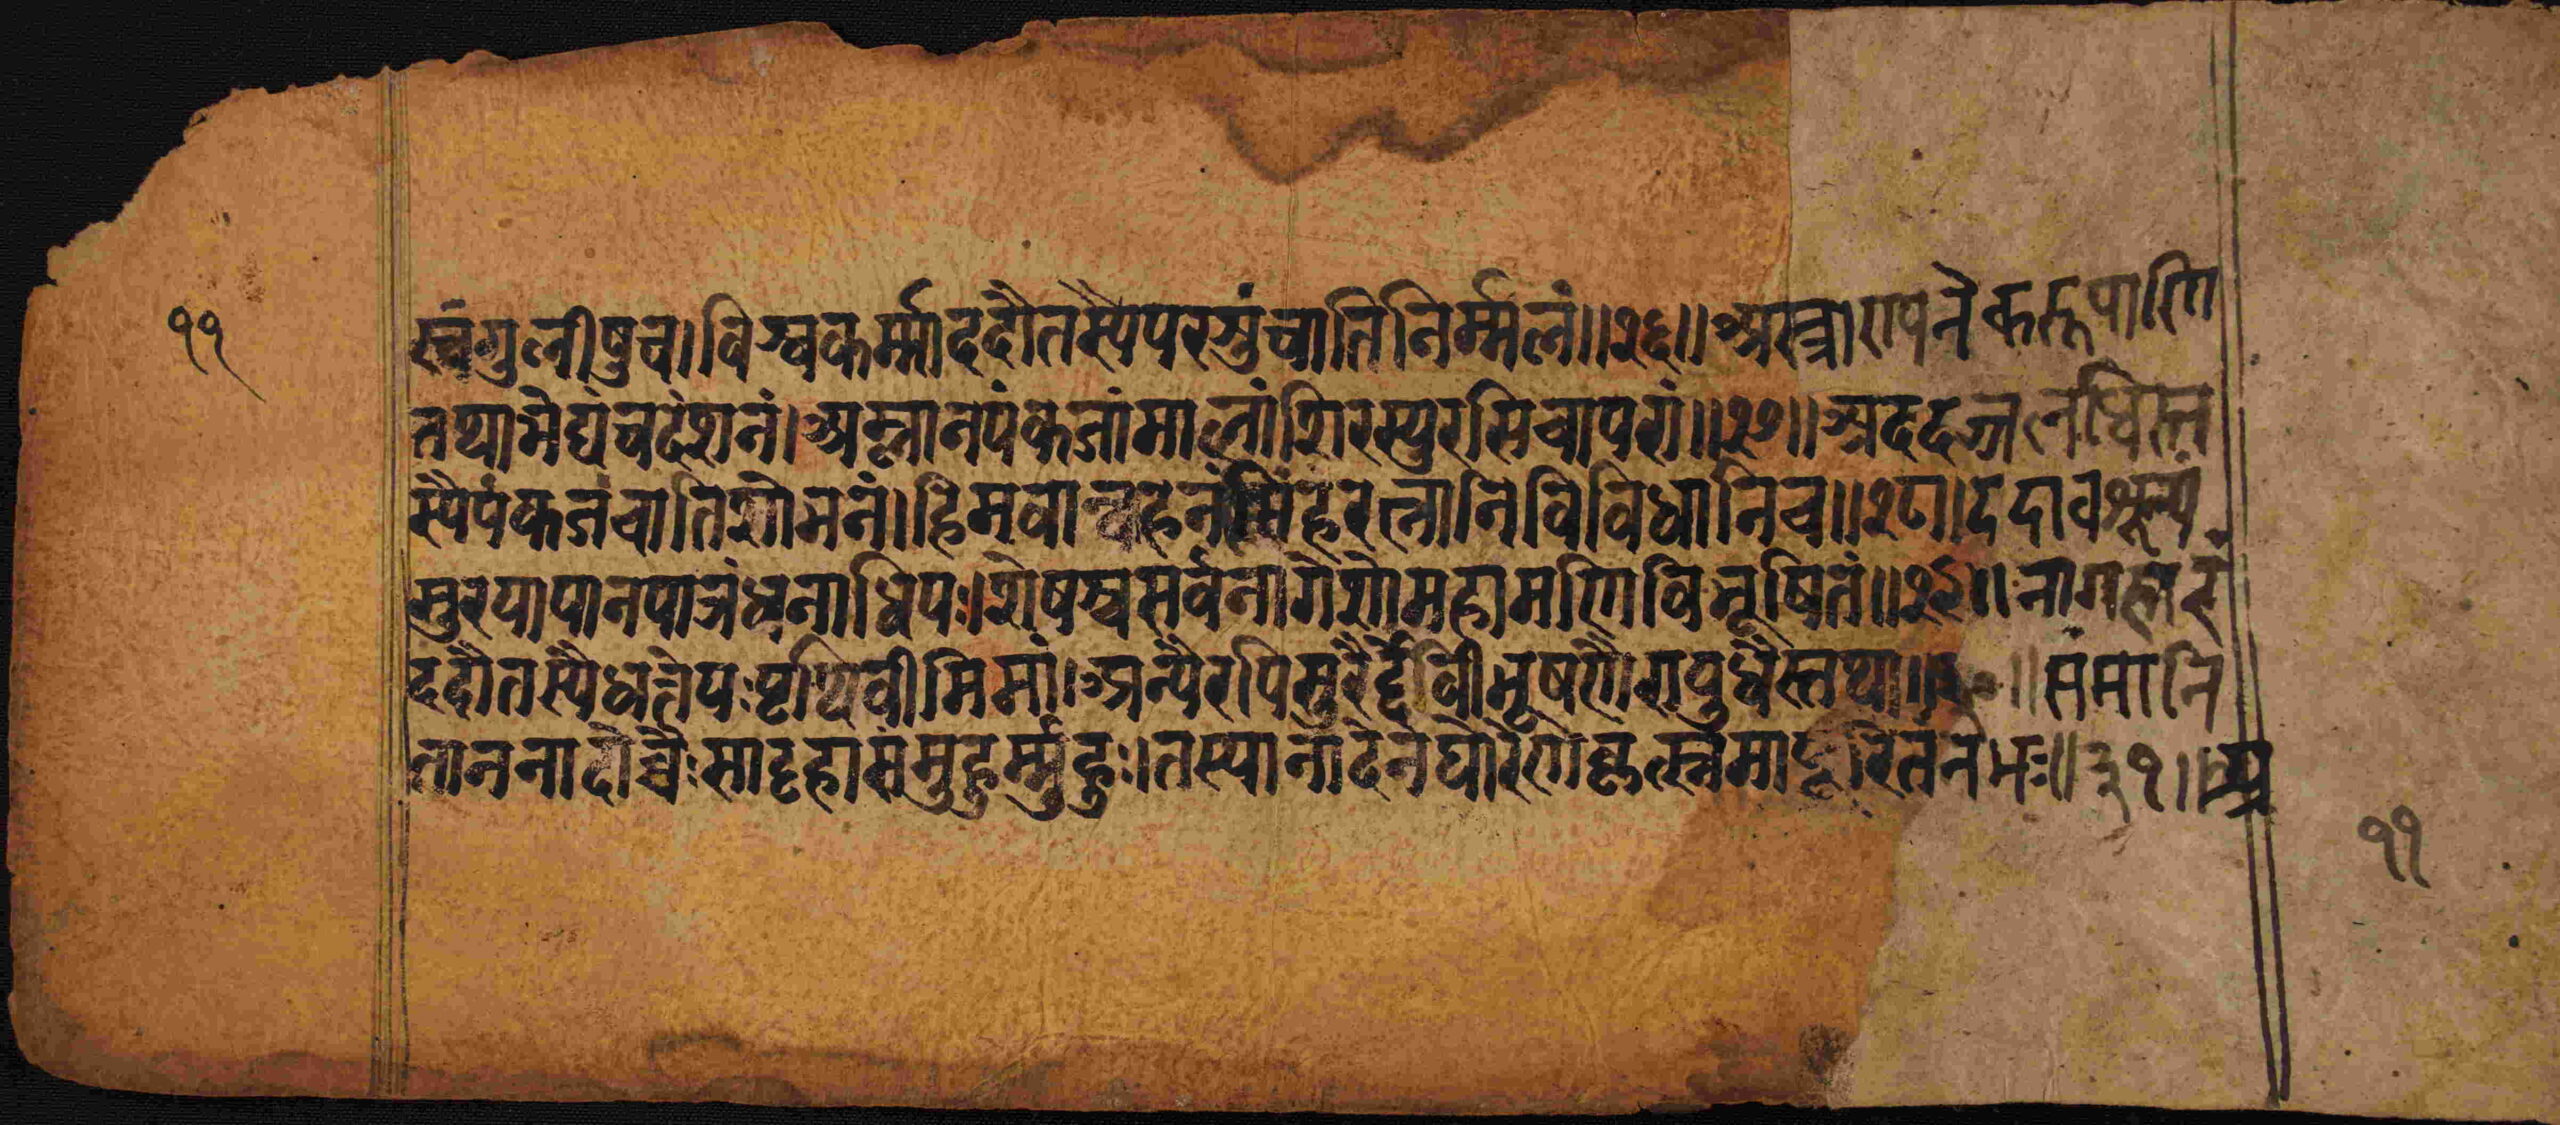 ११
स्वंगुलीषुच।विश्वकर्म्माददौतस्यैपरशुंचातिनिर्म्मलं॥२६॥अस्त्राण्यनेकरूपाणि
तथाभेद्यंचदंशनं।अम्लानपंकजांमालांशिरस्युरसिचापरां॥२७॥अददज्जलधिस्त
स्यैपंकजंचातिशोभनं।हिमवान्वाहनंसिंहंरत्नानिविविधानिच॥२८॥ददावशून्यं
सुरयापानपात्रंधनाधिपः।शेषश्चसर्वनागेशोमहामणिविभूषितं॥२९॥नागहारं
ददौतस्यैधत्तेयःपृथिवीमिमां।अन्यैरपिसुरैर्द्देवीभूषणैरायुधैस्तथा॥३०॥संमानि
ताननादोच्चैःसाट्टहासंमुहुर्म्मुहुः।तस्यानादेनघोरेणकृत्स्नमापूरितंनभः॥३१॥अ
११